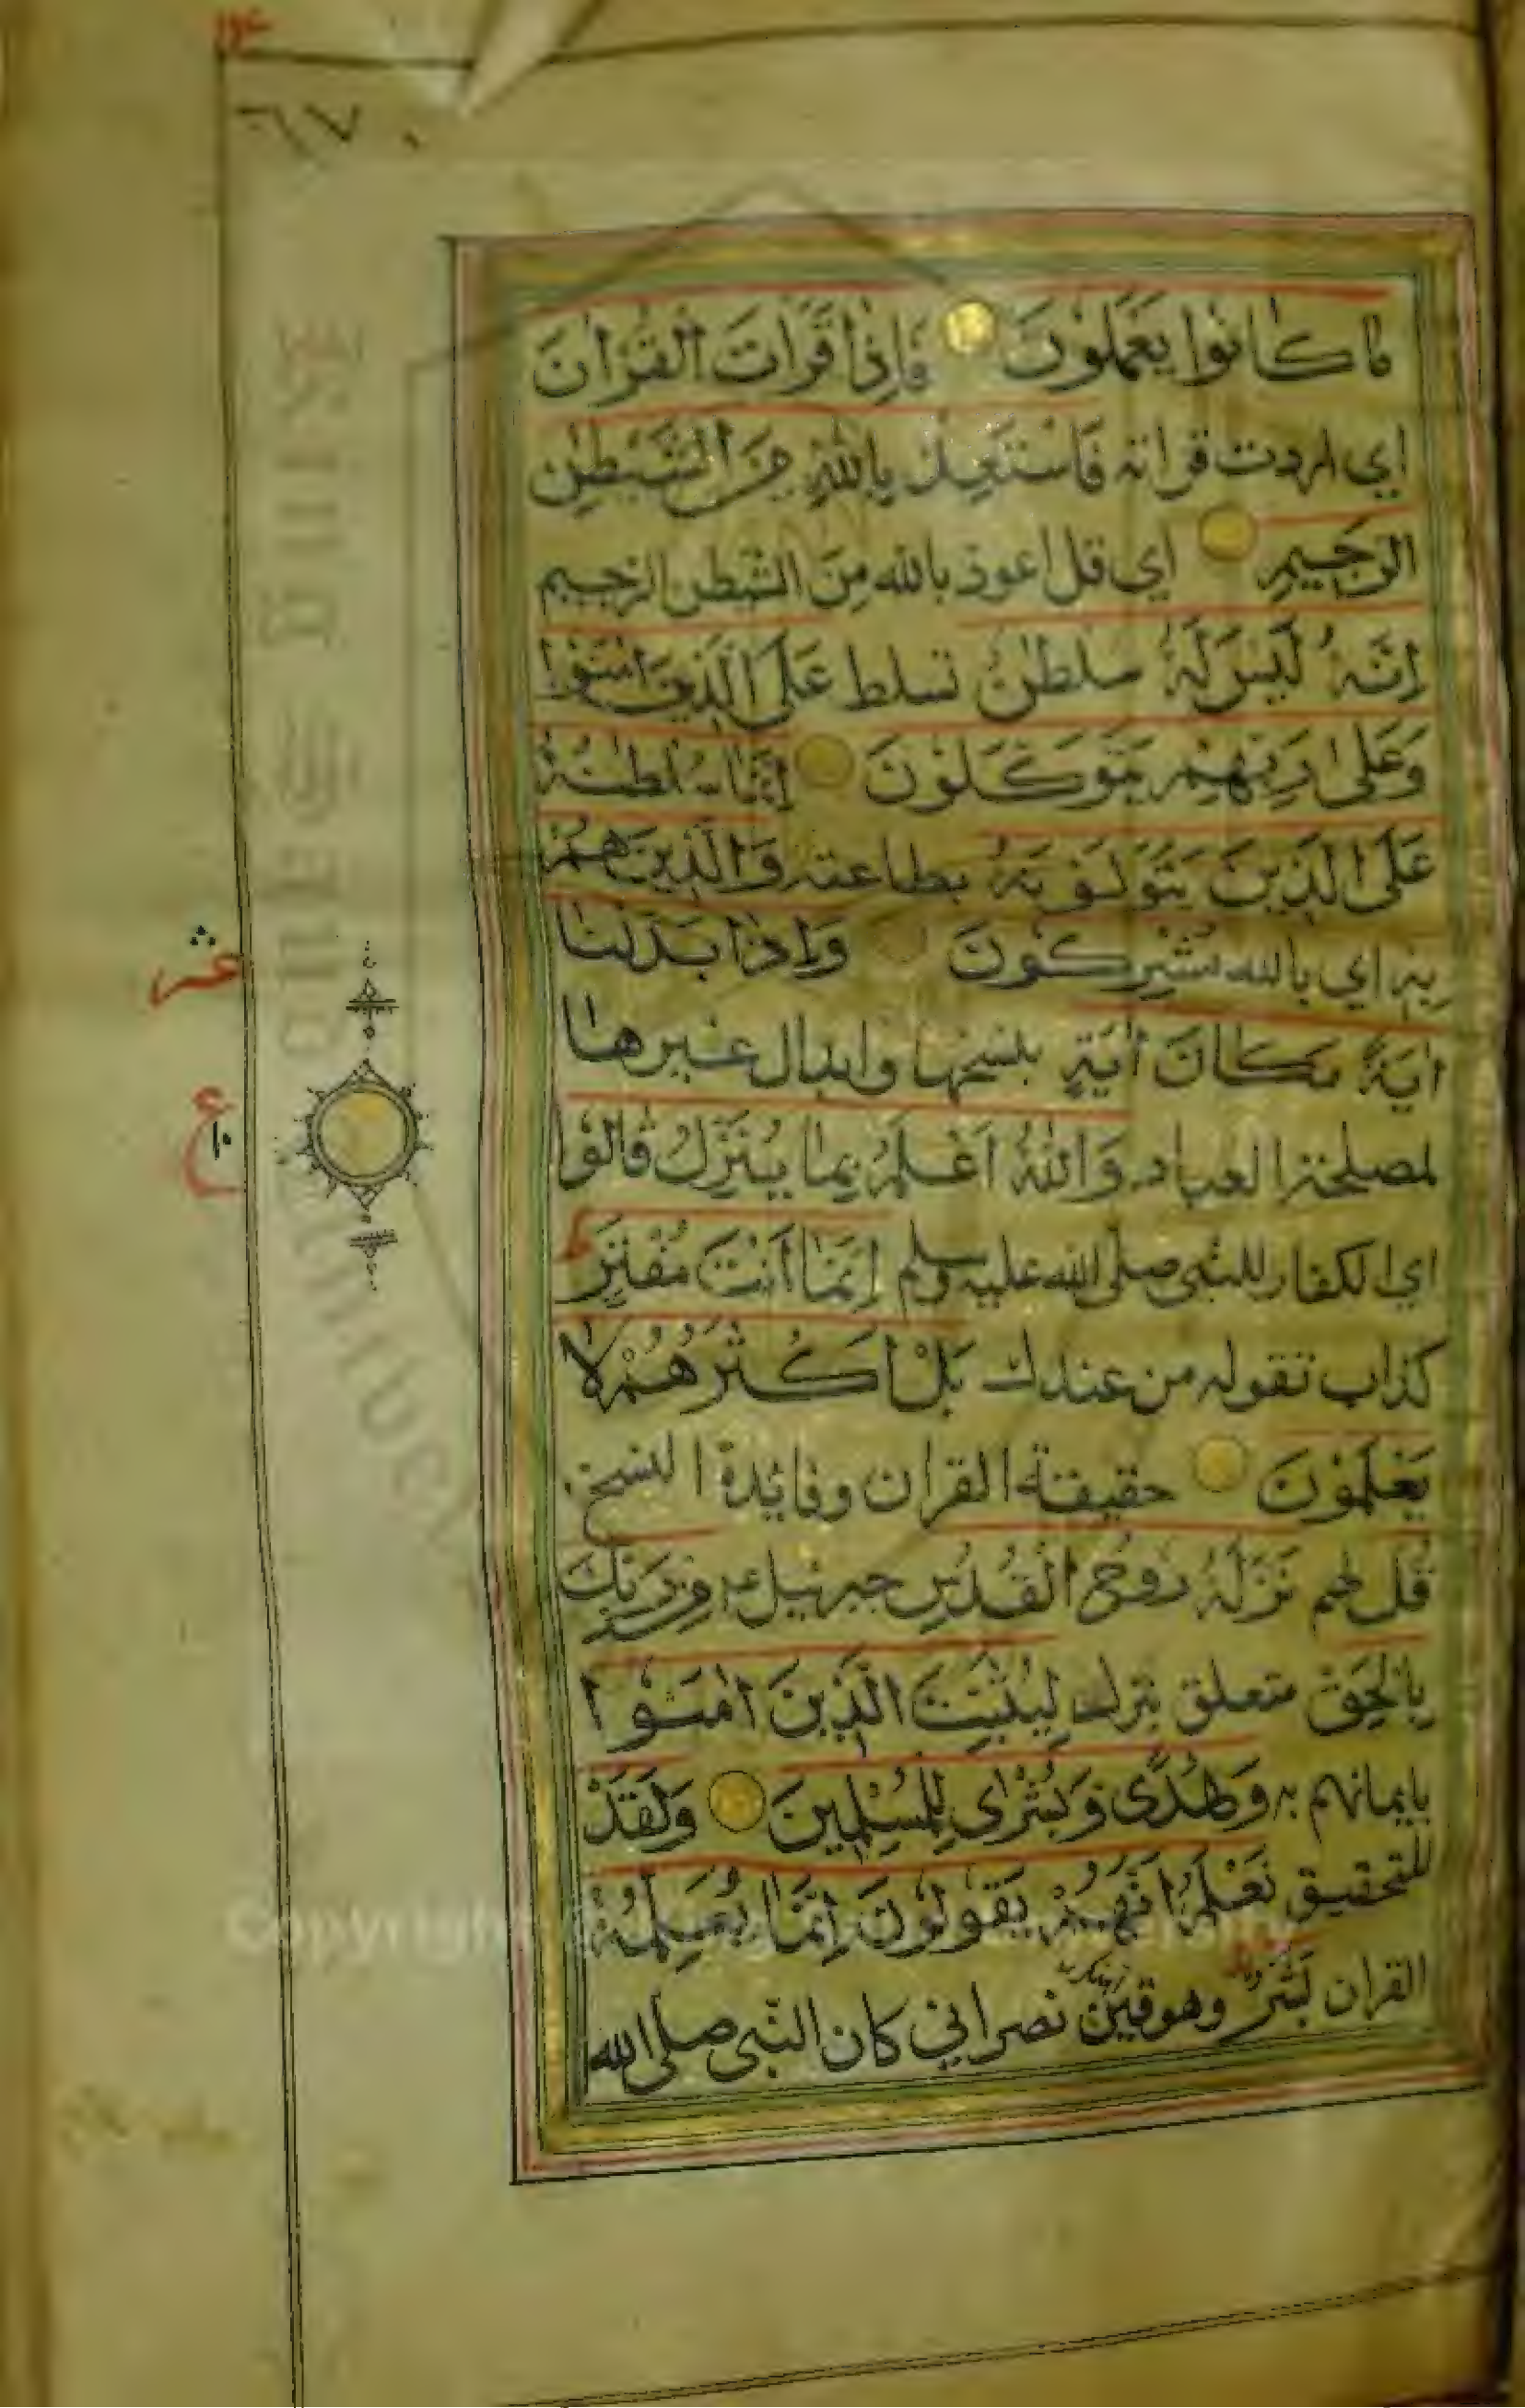 ما كانوا يعملون فاذا قرات القران
اي اردت قراته فاستعذ بالله من الشيطن
الرجيم اي قل اعوذ بالله من الشيطن الرجيم
انه ليس له سلطن تسلط على الذين امنوا
وعلى ربهم يتوكلون انما سلطنه
على الذين يتولونه بطاعته والذين هم
به اي بالله مشركون واذا بدلنا
اية مكان اية بنسخها وابدال غيرها
لمصلحة العباد والله اعلم بما ينزل قالوا
اي الكفار للنبي صلى الله عليه وسلم انما انت مفتر
كذاب تقوله من عندك بل اكثرهم لا
يعلمون حقيقة القران وفائدة النسخ
قل لهم نزله روح القدس جبرئيل من ربك
بالحق متعلق بنزل ليثبت الذين امنوا
بايمانهم به وهدى وبشرى للمسلمين ولقد
للتحقيق نعلم انهم يقولون انما يعلمه
القران بشر وهو قين نصراني كان النبي صلى الله
عشر
ع
١٠